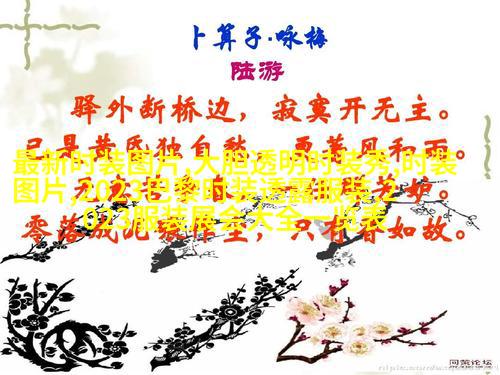 卜算子·咏梅
陆游
驿外断桥边，寂寞开无主。
已是黄昏独自愁，更著风和雨。
最新时装图片,大胆透明时装秀,时装
无意苦争春，一任群芳妒。
图片,2023巴黎时装透露服装,2
零落成泥碾作尘，只有香如故。
023服装展会大全一览表